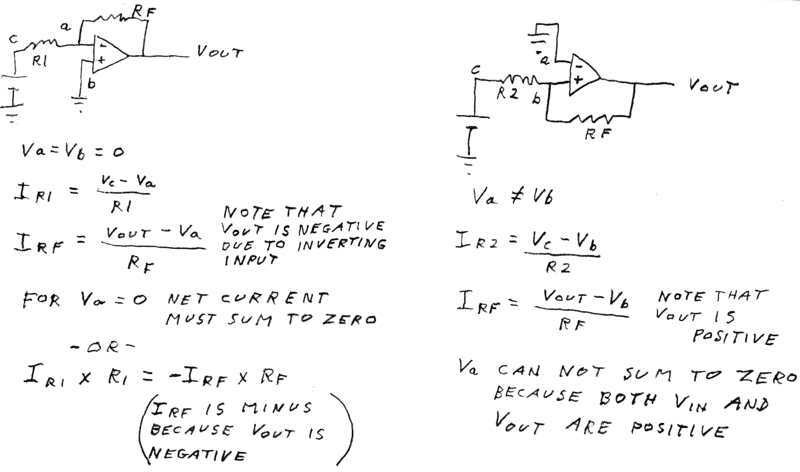 RF
a
c
R1
VOUT
b
Va = Vb = 0
I R1 = Vc - Va / R1
I RF = VOUT - Va / RF
NOTE THAT
VOUT IS NEGATIVE
DUE TO INVERTING
INPUT
FOR Va = 0 NET CURRENT
MUST SUM TO ZERO
- OR -
I R1 x R1 = -I RF x RF
(I RF IS MINUS
BECAUSE VOUT IS
NEGATIVE)
a
c
R2
b
VOUT
RF
Va ≠ Vb
I R2 = Vc - Vb / R2
I RF = VOUT - Vb / RF
NOTE THAT
VOUT IS
POSITIVE
Va CAN NOT SUM TO ZERO
BECAUSE BOTH VIN AND
VOUT ARE POSITIVE